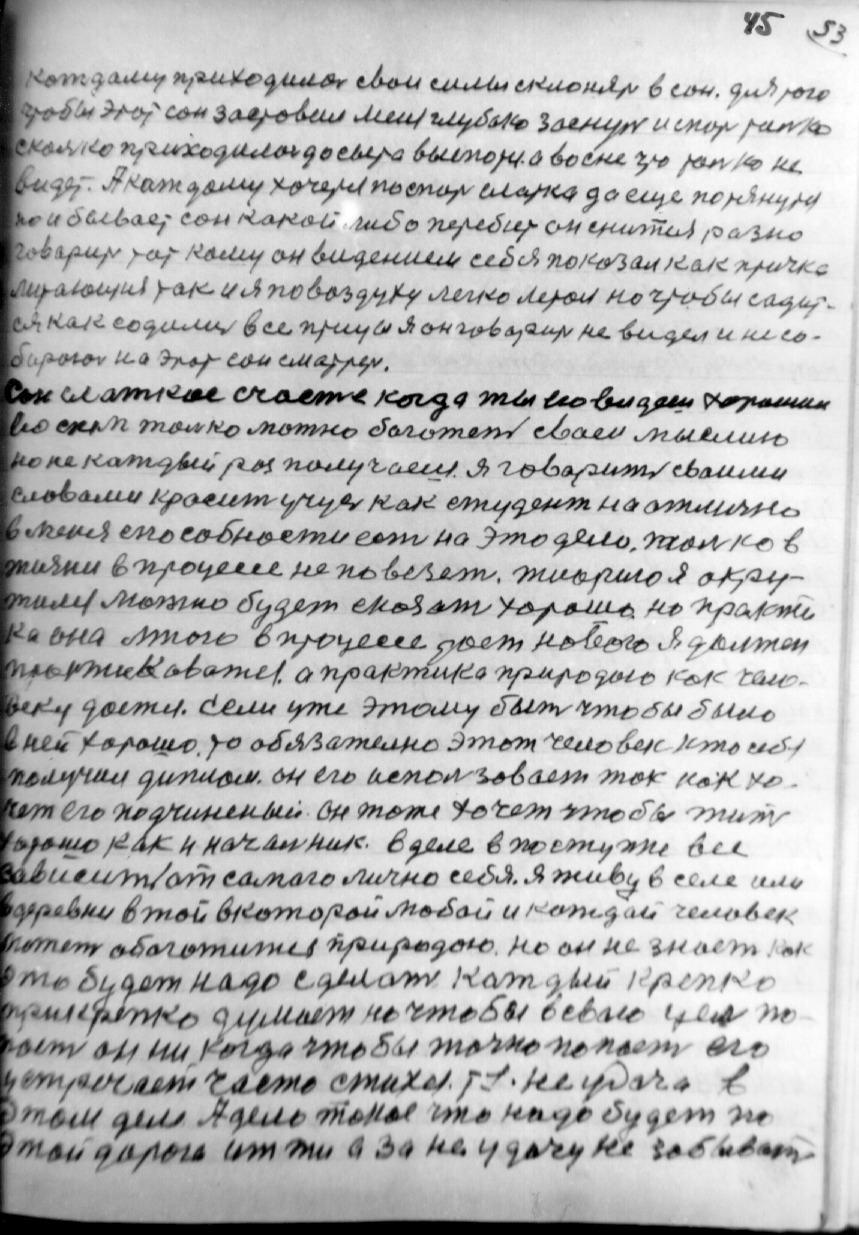 45 53
каждаму приходилос свои силы склонят в сон. для того
чтобы этот сон заставил меня глубоко заснут и спат толко
сколко приходилос до света выспотся а во сне что толко не
видет. А каждому хочется поспат слатка да еще потянутся
но и бывает сон какой либо перебет он снится разно
говарит тот кому он видением себя показал как птичка
литающия так и я по воздуху легко летал но чтобы садит-
ся как содилис все птицы я он говарит не видел и не со-
бираюс на этот сон сматрет.
Сон слаткое счастье когда ты ево видеш хороший
ево сном толко можно богатет своей мыслию
но не каждый раз получаеш. я говарит своими
словами красит учус как студент на отлично
в меня способности ест на это дело. толко в
жизни в процессе не повезет. тиория окру-
жися можно будет сказат хорошо. но практи
ка она много в процессе дает нового я должен
практиковатся. а практика природою как чело-
веку дается. если уже этому быт чтобы было
в ней хорошо. то обязателно этот человек кто себя
получил диплом. он его исползовает так как хо-
чет его подчиненый. он тоже хочет чтобы жит
хорошо как и началник. в деле в поступке все
зависит от самаго лично себя. я живу в селе или
в деревни в той в которой любой и каждай человек
может обогатится природою. но он не знает как
это будет надо сделат каждый крепко
прикрепко думает но чтобы в свою цел по-
пает он ни когда чтобы точно попает его
устречает часто стихия. не удача в
этом деле А дело такое что надо будет по
этой дороги итти а за не удачу не забыват